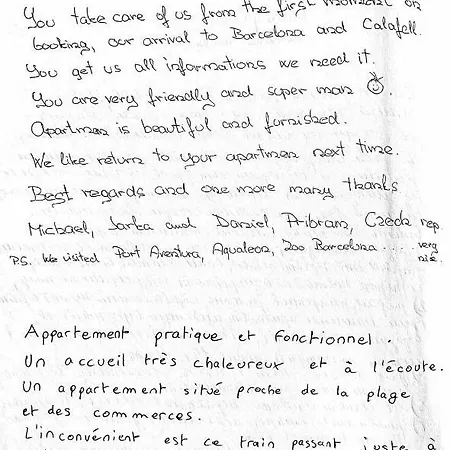 You take care of us from the first moment on
booking, our arrival to Barcelona and Calafell.
You get us all informations we need it.
You are very friendly and super man
Apartman is beautiful and furnished.
We like return to your apartmen next time.
Best regards and one more many thanks
Michael, Jarka and Daniel, Pribram, Czech rep
P.S. We visited Port Aventura, Aqualeon, Zoo Barcelona .... very nice.
Appartement pratique et fonctionnel.
Un accueil très chaleureux et à l'écoute.
Un appartement situé proche de la plage
et des commerces.
L'inconvénient est ce train passant juste à